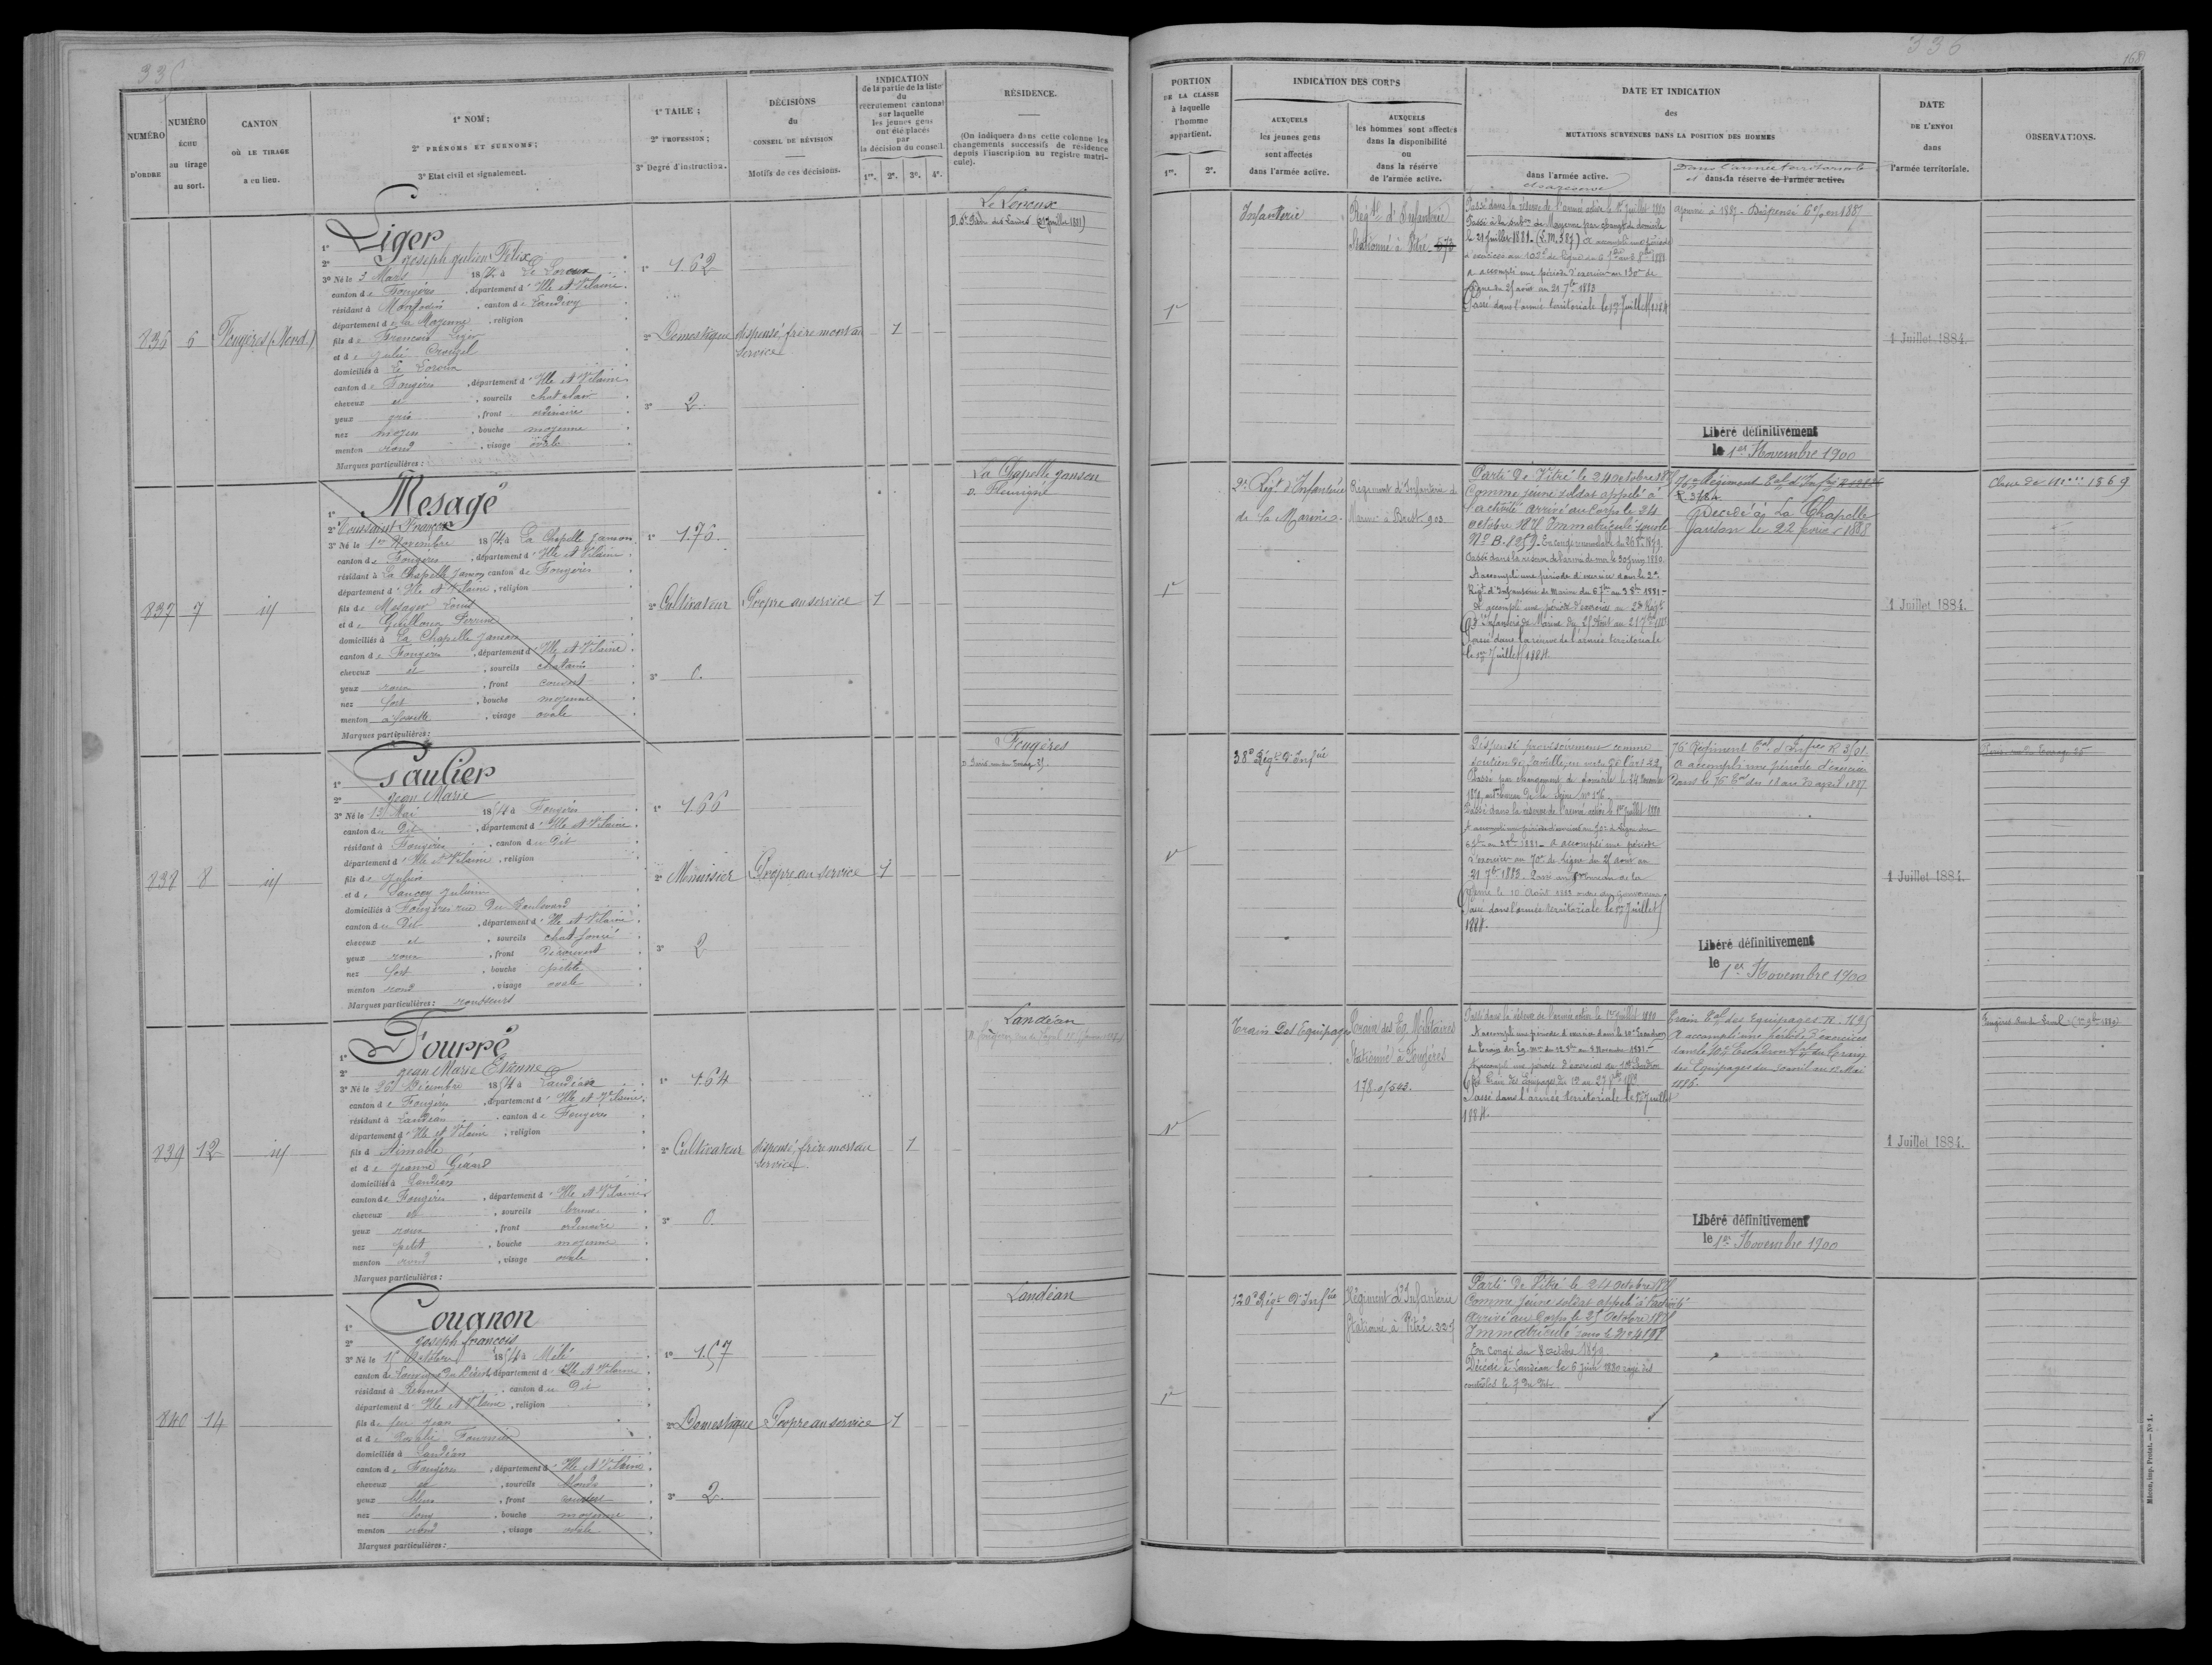 336
168
NUMÉRO D'ORDRE
NUMÉRO ÉCHU au tirage au sort.
CANTON OÙ LE TIRAGE a eu lieu.
1° NOM ;
2° PRÉNOMS ET SURNOMS ;
3° Etat civil et signalement.
1° TAILE ;
2° PROFESSION ;
3° Degré d'instruction.
DÉCISIONS
du
CONSEIL DE RÉVISION
Motifs de ces décisions.
INDICATION
de la partie de la liste
du
recrutement cantonal
sur laquelle
les jeunes gens
ont été placés
par
la décision du conseil
1re. 2e. 3e. 4e.
RÉSIDENCE.
(On indiquera dans cette colonne les
changements successifs de résidence
depuis l'inscription au registre matri-
cule).
PORTION
DE LA CLASSE
à laquelle
l'homme
appartient.
1re. 2e.
INDICATION DES CORPS
AUXQUELS
les jeunes gens
sont affectés
dans l'armée active.
AUXQUELS
les hommes sont affectés
dans la disponibilité
ou
dans la réserve
de l'armée active.
DATE ET INDICATION
des
MUTATIONS SURVENUES DANS LA POSITION DES HOMMES
dans l'armée active.
et sa réserve
Dans l'armée territoriale
et dans la réserve de l'armée active.
DATE
DE L'ENVOI
dans
l'armée territoriale.
OBSERVATIONS.
836
6
Fougères (Nord.)
1° Liger
2° Joseph Julien Félix
3° Né le 3 Mars 1854 à Le Loroux
canton de Fougères, département d'Ille et Vilaine
résidant à, canton de Landivy
département de la Mayenne, religion
fils de François Liger
et de Julie
domiciliés à Le Loroux
canton de Fougères, département d'Ille et Vilaine
cheveux et, sourcils chat clair
yeux gris, front ordinaire
nez moyen, bouche moyenne
menton rond, visage ovale
Marques particulières :
1° 1.62
2° Domestique
3° 2
dispensé frère mort au
service
1
Le Loroux
1re
Infanterie
Régt d'Infanterie
Stationné à Vitré 573
Passé dans la réserve de l'armée active le 1er juillet 1880
Passé à la subon de Mayenne par changt de domicile
le 21 Juillet 1881
A accompli une période d'exercice au 130e de
ligne du 25 août au 21 7bre 1883
Passé dans l'armée territoriale le 1er Juillet 1884
ajourné à 1887. Dispensé 6% en 1887
Libéré définitivement
le 1er Novembre 1900
1 Juillet 1884.
837
7
id
1° Mesagé
2° Toussaint François
3° Né le 1er Novembre 1854 à La Chapelle Janson
canton de Fougères, département d'Ille et Vilaine
résidant à La Chapelle Janson canton de Fougères
département d'Ille et Vilaine, religion
fils de Mesager Louis
et de Guilloux Perrine
domiciliés à La Chapelle Janson
canton de Fougères, département d'Ille et Vilaine
cheveux et, sourcils chatains
yeux roux, front couvert
nez fort, bouche moyenne
menton à fossette, visage ovale
Marques particulières :
1° 1.76.
2° Cultivateur
3° 0.
Propre au service
1
La Chapelle Janson
D. Fleurigné
1re
2e Régt d'Infanterie
de la Marine.
Régiment d'Infanterie de
Marine à Brest. 903
Parti de Vitré le 24 octobre 1875
Comme jeune soldat appelé à
l'activité arrivé au Corps le 24
octobre 1875 Immatriculé sous le
No B. 8259. En congé renouvelable du 26 8bre 1879
Passé dans la réserve de l'armée de mer le 30 juin 1880
A accompli une période d'exercice dans le 2e
Régt d'Infanterie de marine du 6 7bre au 3 8bre 1881
A accompli une période d'exercices au 2e Régt
d'Infanterie de Marine du 25 Août au 21 7bre 1883
Passé dans la réserve de l'armée territoriale
le 1er Juillet 1884.
Régiment Eal d'Infie
R. 3184
Décédé à La Chapelle
Janson le 22 1888
1 Juillet 1884.
Classe de 1869
838
8
id
1° Paulier
2° Jean Marie
3° Né le 13 Mai 1854 à Fougères
canton du Dit, département d'Ille et Vilaine
résidant à Fougères, canton du Dit
département d'Ille et Vilaine, religion
fils de Julien
et de Saucey Julienne
domiciliés à Fougères rue Du Boulevard
canton du Dit, département d'Ille et Vilaine
cheveux et, sourcils chat foncé
yeux roux, front découvert
nez fort, bouche petite
menton rond, visage ovale
Marques particulières : rousseurs
1° 1.66
2° Menuisier
3° 2
Propre au service
1
Fougères
1re
38e Régt d'Infie
Dispensé provisoirement comme
soutien de famille, en vertu de l'art 22
Passé par changement de domicile le 24
1879, au bureau de la Seine no 176.
Passé dans la réserve de l'armée active le 1er juillet 1880
A accompli une période d'exercices au 70e de ligne du
A accompli une période
d'exercices au 70e de ligne du 25 août au
21 7bre 1883. Passé au bureau de la
Seine le 10 Août 1883
Passé dans l'armée territoriale le 1er Juillet
1884.
76e Régiment Eal d'Infie R 3/01
A accompli une période d'exercices
dans le 76e Eal du 18 au 30 avril 1887
Libéré définitivement
le 1er Novembre 1900
1 Juillet 1884.
839
12
id
1° Fourré
2° Jean Marie Etienne
3° Né le 26 Décembre 1854 à Landéan
canton de Fougères, département d'Ille et Vilaine
résidant à Landéan, canton de Fougères
département d'Ille et Vilaine, religion
fils d'Aimable
et de Jeanne Géard
domiciliés à Landéan
canton de Fougères, département d'Ille et Vilaine
cheveux et, sourcils bruns
yeux roux, front ordinaire
nez petit, bouche moyenne
menton rond, visage ovale
Marques particulières :
1° 1.64
2° Cultivateur
3° 0.
dispensé frère mort au
service
1
Landéan
1re
Train Des Equipages
Train des Eq. Militaires
Stationné à Fougères
178.0/543.
Passé dans la réserve de l'armée active le 1er juillet 1880
A accompli une période d'exercice dans le 10e Escadron
du Train des Eq. mres du 12 8bre au 8 Novembre 1881
A accompli une période d'exercices au 10e Escadron
du Train des Equipages du 12 au 27 8bre 1883
Passé dans l'armée territoriale le 1er Juillet
1884.
Train Eal des Equipages R. 1695
A accompli une période d'exercices
dans le 10e Escadron Eal du Train
des Equipages du 30 avril au 12 Mai
1886.
Libéré définitivement
le 1er Novembre 1900
1 Juillet 1884.
840
14
1° Couanon
2° Joseph François
3° Né le 15 Octobre 1854 à Mélé
canton de Louvigné du Désert, département d'Ille et Vilaine
résidant à Rennes, canton du Dit
département d'Ille et Vilaine, religion
fils de feu Jean
et de Rosalie Fournier
domiciliés à Landéan
canton de Fougères, département d'Ille et Vilaine
cheveux et, sourcils blonds
yeux bleus, front
nez long, bouche moyenne
menton rond, visage ovale
Marques particulières :
1° 1.67
2° Domestique
3° 2.
Propre au service
1
Landéan
1re
120e Régt d'Infie
Régiment d'Infanterie
Stationné à Vitré. 225
Parti de Vitré le 24 Octobre 1875
Comme jeune soldat appelé à l'activité
Arrivé au Corps le 25 Octobre 1875
Immatriculé sous le
En congé du 8 octobre 1879.
Décédé à Landéan le 6 Juin 1880 rayé des
contrôles le 7 du dit.
Mâcon, imp. Protat. — No 1.